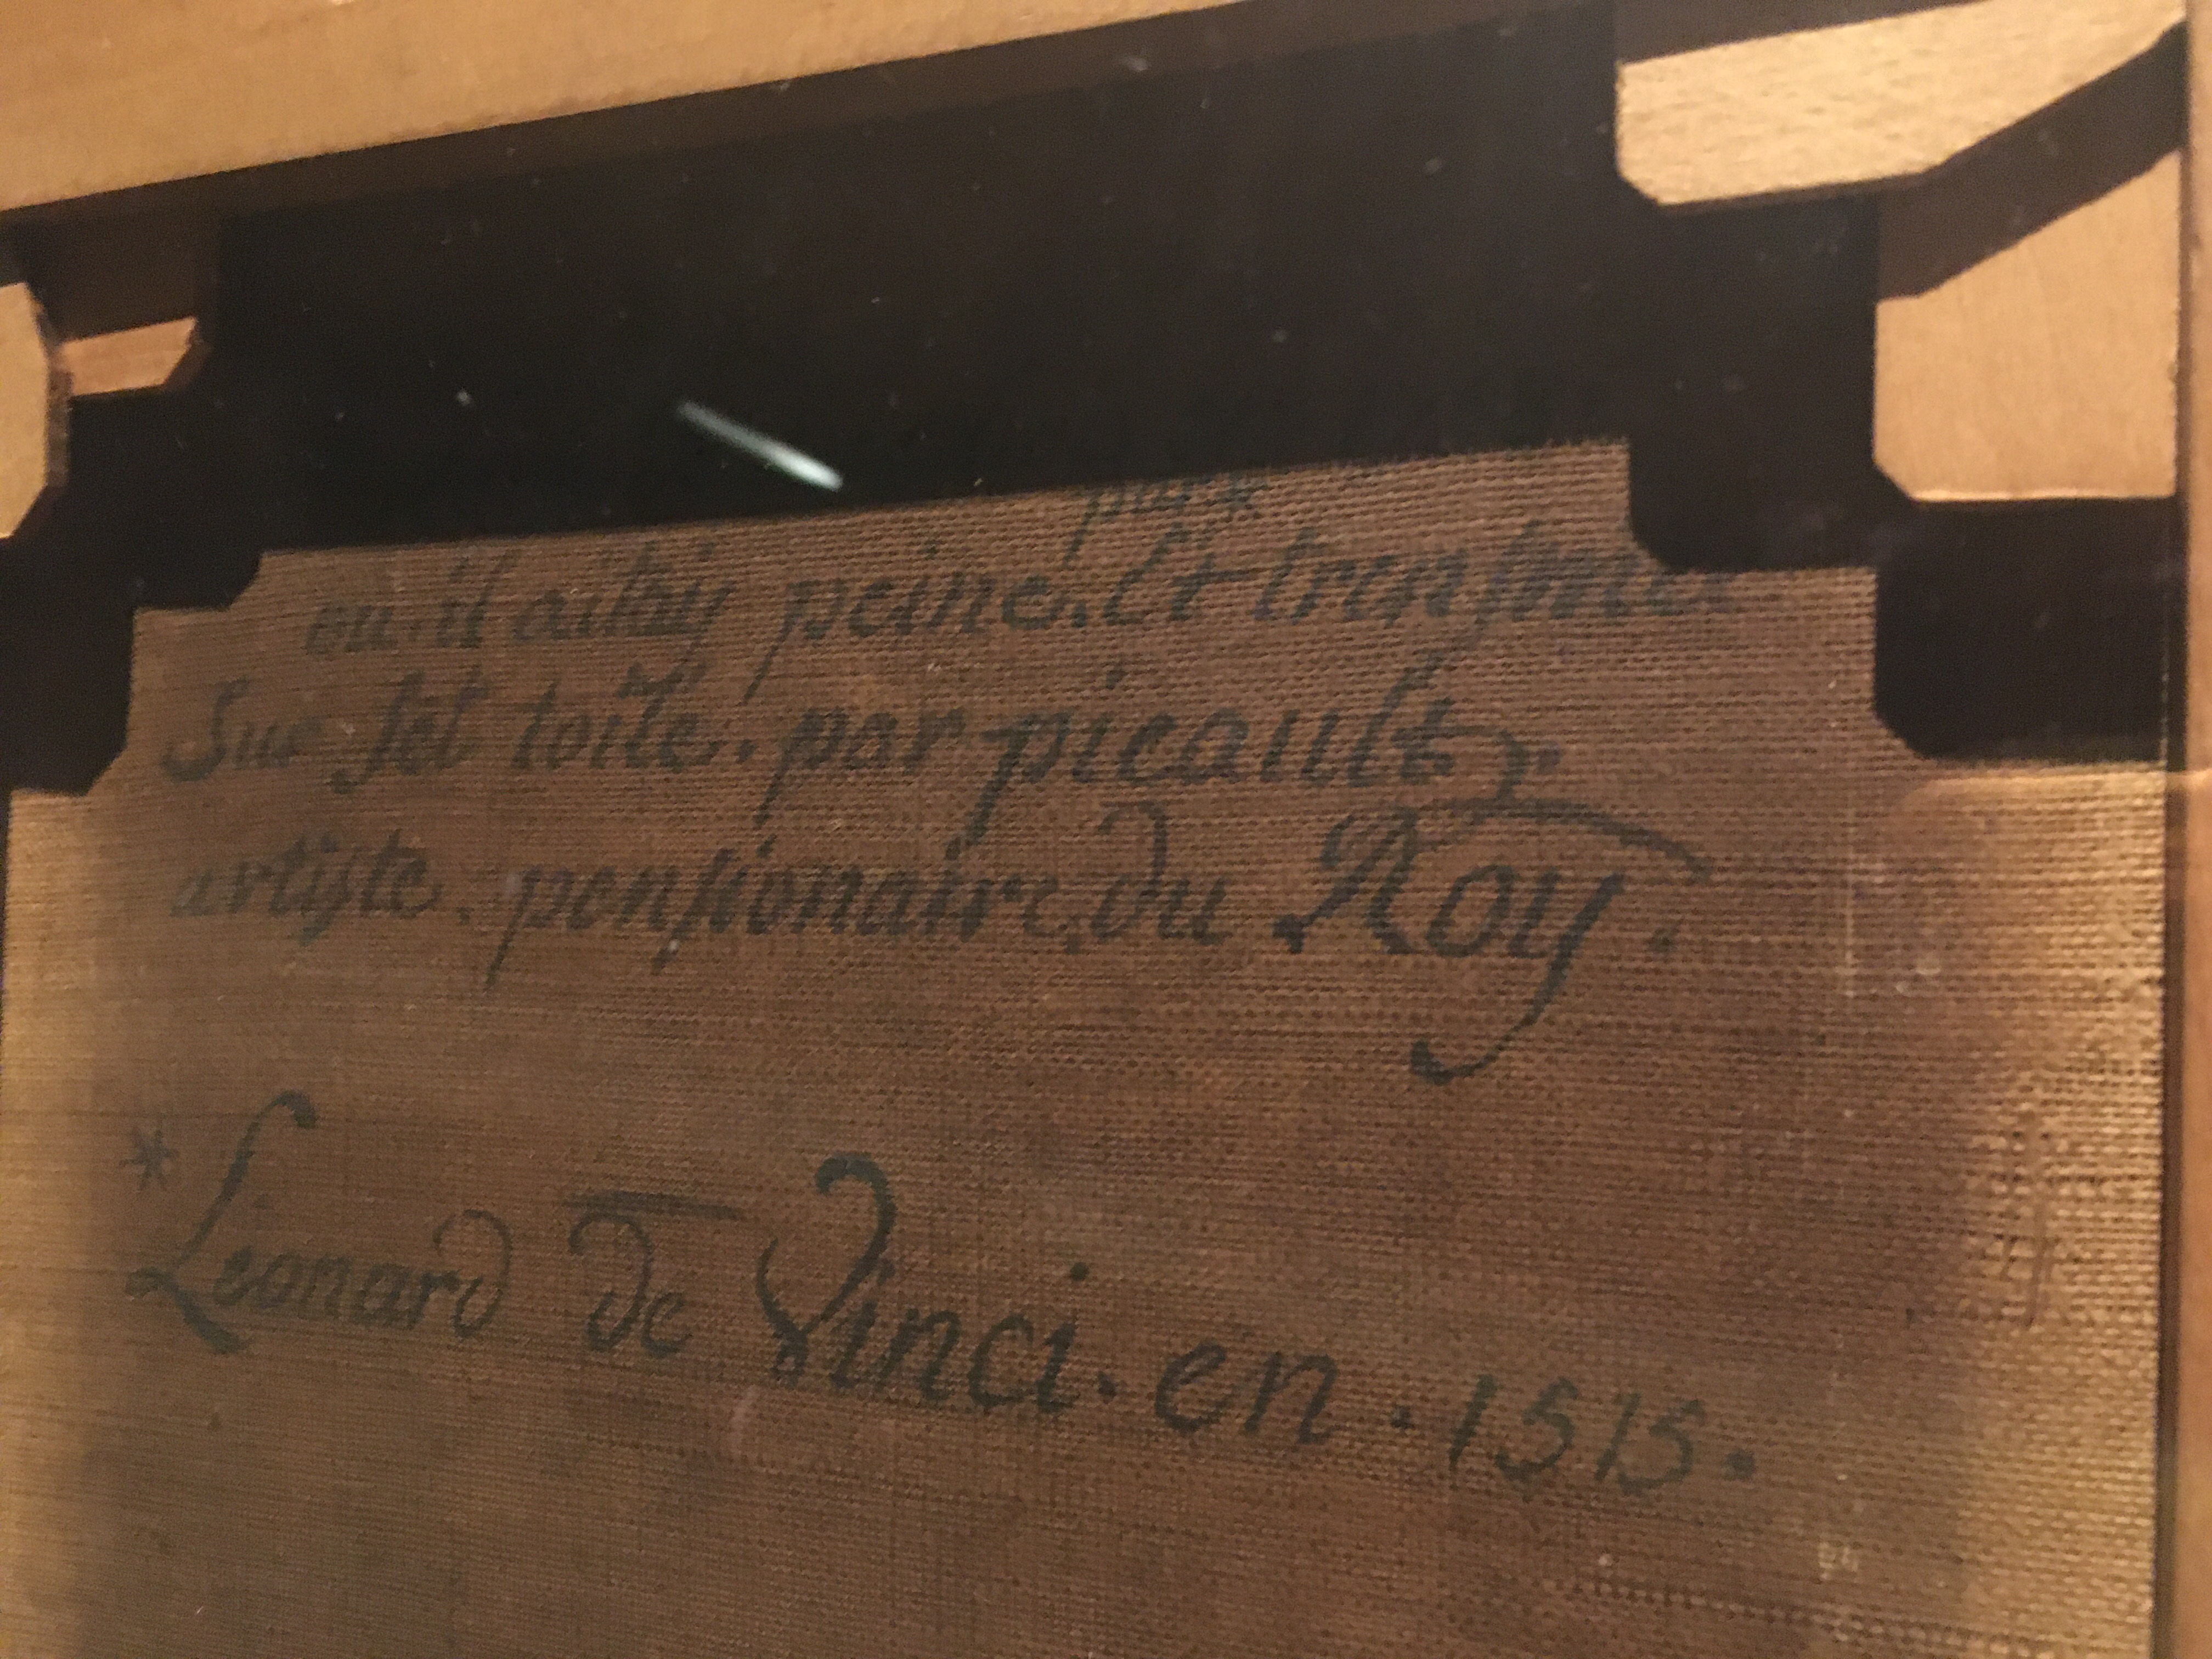 par *
ou. il aitay peine. Et transmi
Sur set toile. par picault,
artiste. pensionaire. du Roy.
* Leonard de Vinci. en. 1515.